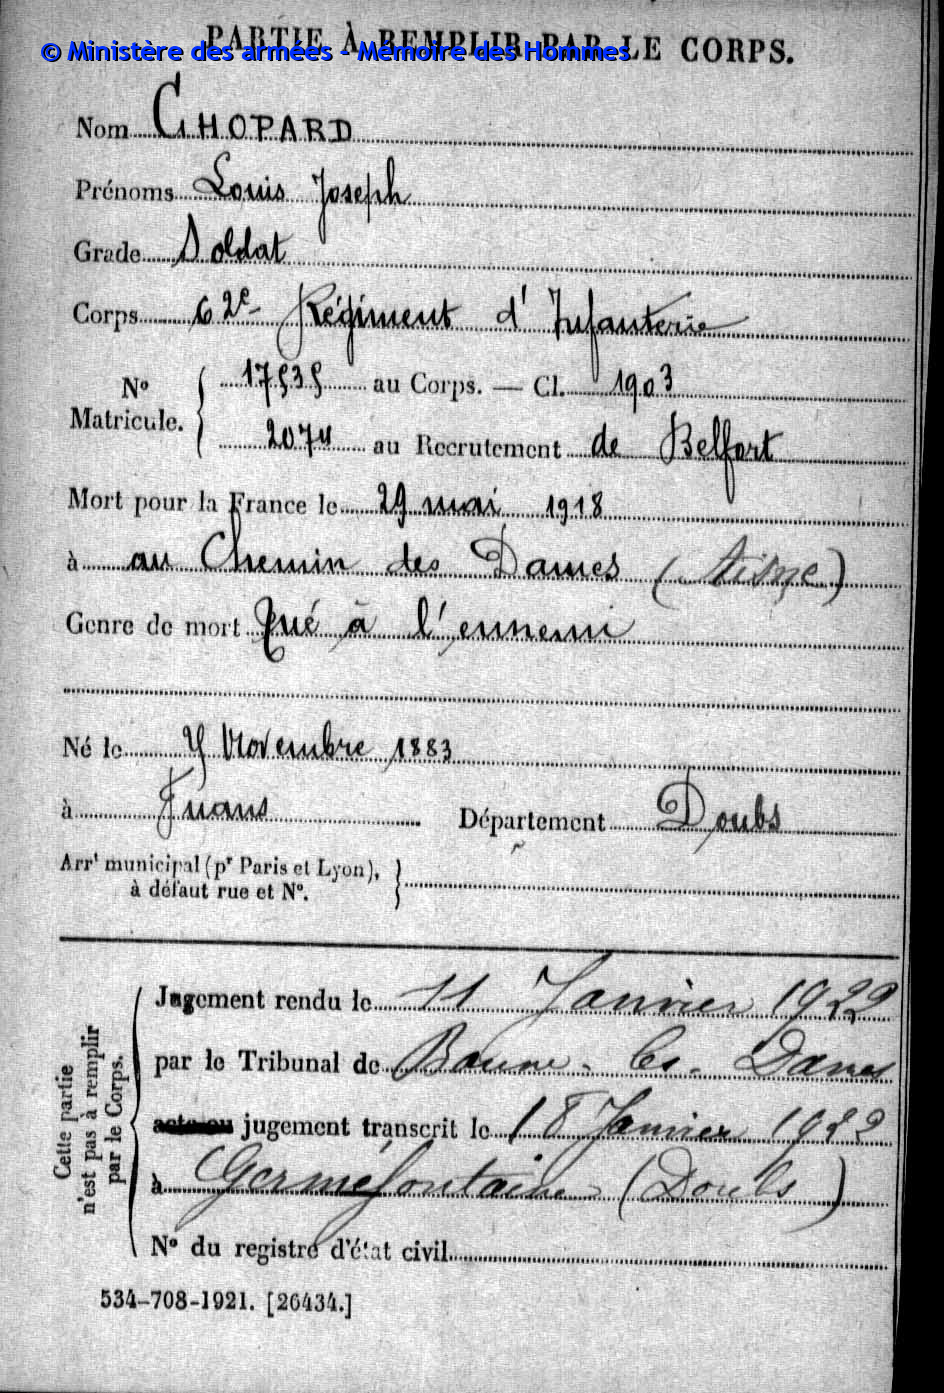 PARTIE À REMPLIR PAR LE CORPS.
© Ministère des armées - Mémoire des Hommes
Nom CHOPARD
Prénoms Louis Joseph
Grade Soldat
Corps 62e Régiment d'Infanterie
No Matricule. { 17535 au Corps. — Cl. 1903
2074 au Recrutement de Belfort
Mort pour la France le 29 mai 1918
à au Chemin des Dames (Aisne)
Genre de mort Tué à l'ennemi
Né le Novembre 1883
à Fuans Département Doubs
Arrt municipal (pr Paris et Lyon), }
à défaut rue et No.
Cette partie
n'est pas à remplir
par le Corps.
Jugement rendu le 11 Janvier 1922
par le Tribunal de Baume-les-Dames
acte ou jugement transcrit le 18 Janvier 1922
à Germéfontaine (Doubs)
No du registre d'état civil
534-708-1921. [26434.]